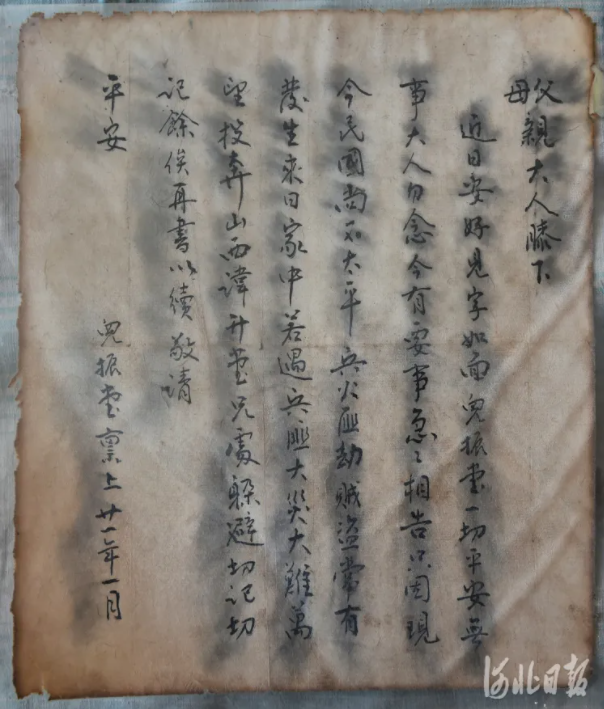 父母親大人膝下
近日安好見字如面兒振堂一切平安無
事大人勿念今有要事急々相告只因現
今民國尚不太平兵火匪劫賊盗常有
發生来日家中若遇兵匪大災大難萬
望投奔山西諱升堂兄處躲避切記切
記餘俟再書以續敬請
平安
兒振堂禀上廿一年一月
河北日报